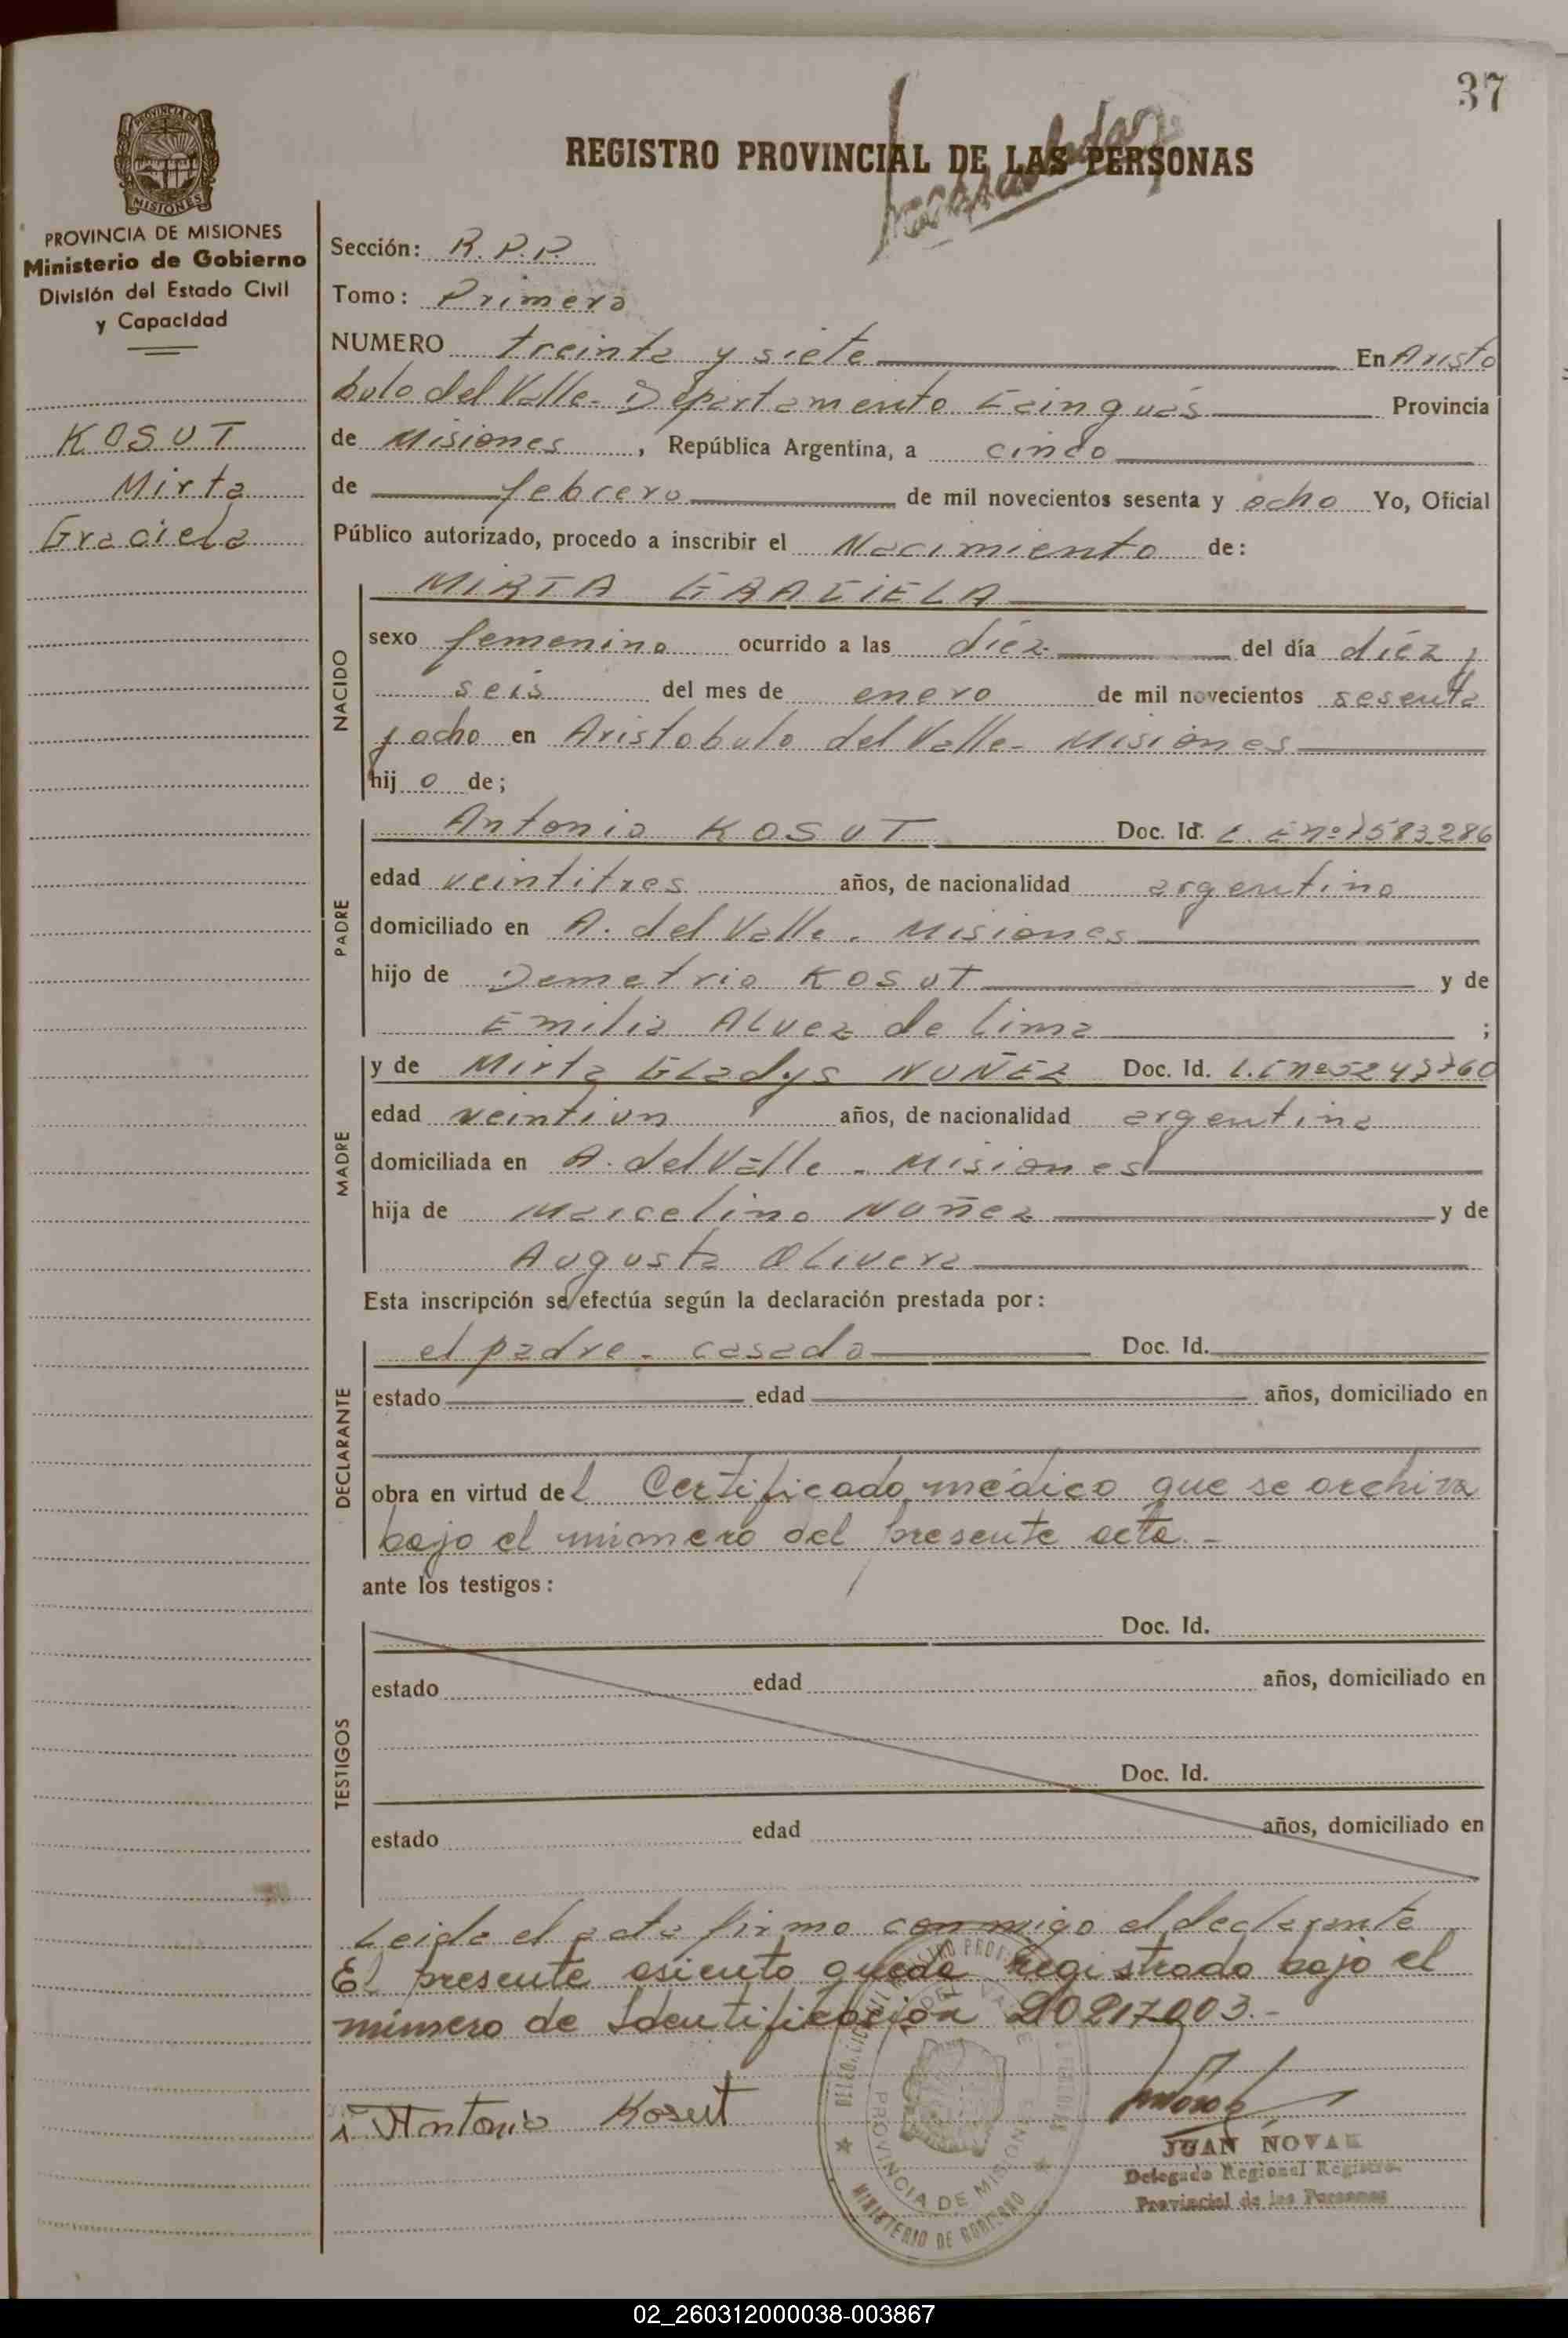 37
REGISTRO PROVINCIAL DE LAS PERSONAS
PROVINCIA DE
MISIONES
PROVINCIA DE MISIONES
Ministerio de Gobierno
División del Estado Civil
y Capacidad
KOSUT
Mirta
Graciela
Sección: R.P.P.
Tomo: Primero
NUMERO treinta y siete En Aristo
bulo del Valle - Departamento Cainguás Provincia
de Misiones, República Argentina, a cinco
de febrero de mil novecientos sesenta y ocho Yo, Oficial
Público autorizado, procedo a inscribir el Nacimiento de:
NACIDO
MIRTA GRACIELA
sexo femenino ocurrido a las diéz del día diéz y
seis del mes de enero de mil novecientos sesenta
y ocho en Aristobulo del Valle - Misiones
hij o de;
PADRE
Antonio KOSUT Doc. Id. L. E nº 7583286
edad veintitres años, de nacionalidad argentino
domiciliado en A. del Valle - Misiones
hijo de Demetrio KOSUT y de
Emilia ALvez de Lima ;
MADRE
y de Mirta GLadys NUÑEZ Doc. Id. L.C nº
edad veintiun años, de nacionalidad argentina
domiciliada en A. del Valle - Misiones
hija de Marcelino NUñez y de
Augusta OLivera
Esta inscripción se efectúa según la declaración prestada por:
DECLARANTE
el padre - casado Doc. Id.
estado edad años, domiciliado en
obra en virtud del Certificado médico que se archiva
bajo el número del presente acta.-
ante los testigos:
TESTIGOS
Doc. Id.
estado edad años, domiciliado en
Doc. Id.
estado edad años, domiciliado en
Leida el acta firma conmigo el declarante
El presente asiento queda registrado bajo el
número de Identificación 20217003.-
Antonio Kosut
PROVINCIA DE MISIONES
MINISTERIO DE GOBIERNO
JUAN NOVAK
Delegado Regional Registro
Provincial de las Personas
02_260312000038-003867